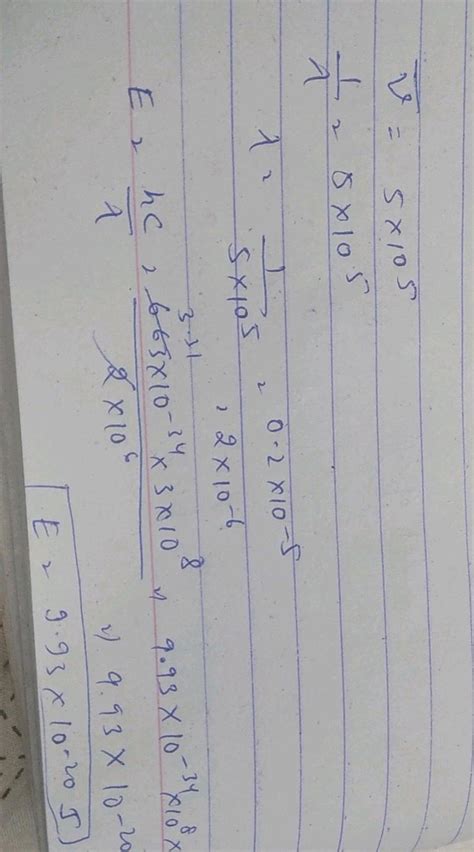 ν̅ = 5×10⁵
1/λ = 5×10⁵
λ = 1/5×10⁵ = 0.2×10⁻⁵
= 2×10⁻⁶
E = hc/λ = 6.63×10⁻³⁴ × 3×10⁸ / 2×10⁶ = 9.93×10⁻³⁴×10⁸×
3.31
= 9.93×10⁻²⁰
E = 9.93×10⁻²⁰ J